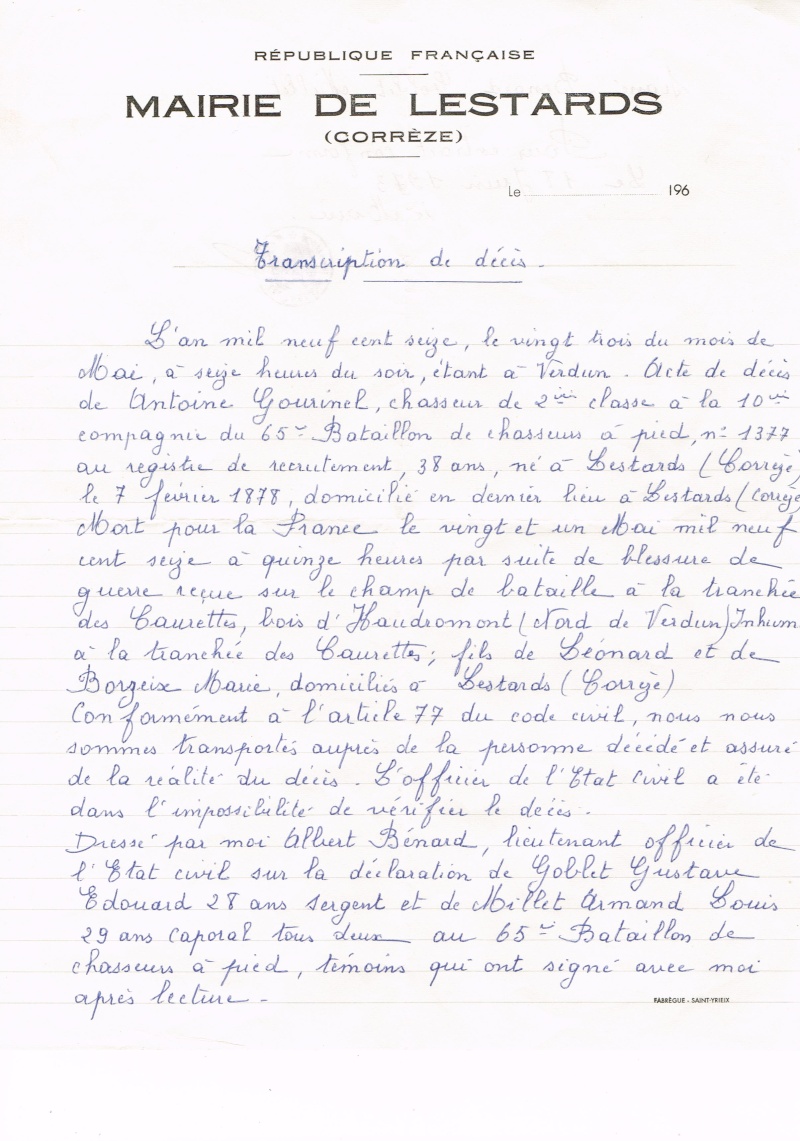 RÉPUBLIQUE FRANÇAISE
MAIRIE DE LESTARDS
(CORRÈZE)
Le 196
Transcription de décès.
L'an mil neuf cent seize, le vingt trois du mois de
Mai, à seize heures du soir, étant à Verdun. Acte de décès
de Antoine Gourinel, chasseur de 2ième classe à la 10ième
compagnie du 65e Bataillon de chasseurs à pied, n° 1377
au registre de recrutement, 38 ans, né à Lestards (Corrèze)
le 7 février 1878, domicilié en dernier lieu à Lestards (Corrèze
Mort pour la France le vingt et un Mai mil neuf
cent seize à quinze heures par suite de blessure de
guerre reçue sur le champ de bataille à la tranchée
des Caurettes, bois d'Haudromont (Nord de Verdun) Inhum
à la tranchée des Caurettes; fils de Léonard et de
Borzeix Marie, domiciliés à Lestards (Corrèze)
Conformément à l'article 77 du code civil, nous nous
sommes transportés auprès de la personne décédé et assuré
de la réalité du décès. L'officier de l'Etat Civil a été
dans l'impossibilité de vérifier le décès.
Dressé par moi Albert Bénard, lieutenant officier de
l'Etat civil sur la déclaration de Goblet Gustave
Edouard 28 ans sergent et de Millet Armand Louis
29 ans caporal tous deux au 65e Bataillon de
chasseurs à pied, témoins qui ont signé avec moi
après lecture -
FABRÈGUE - SAINT-YRIEIX